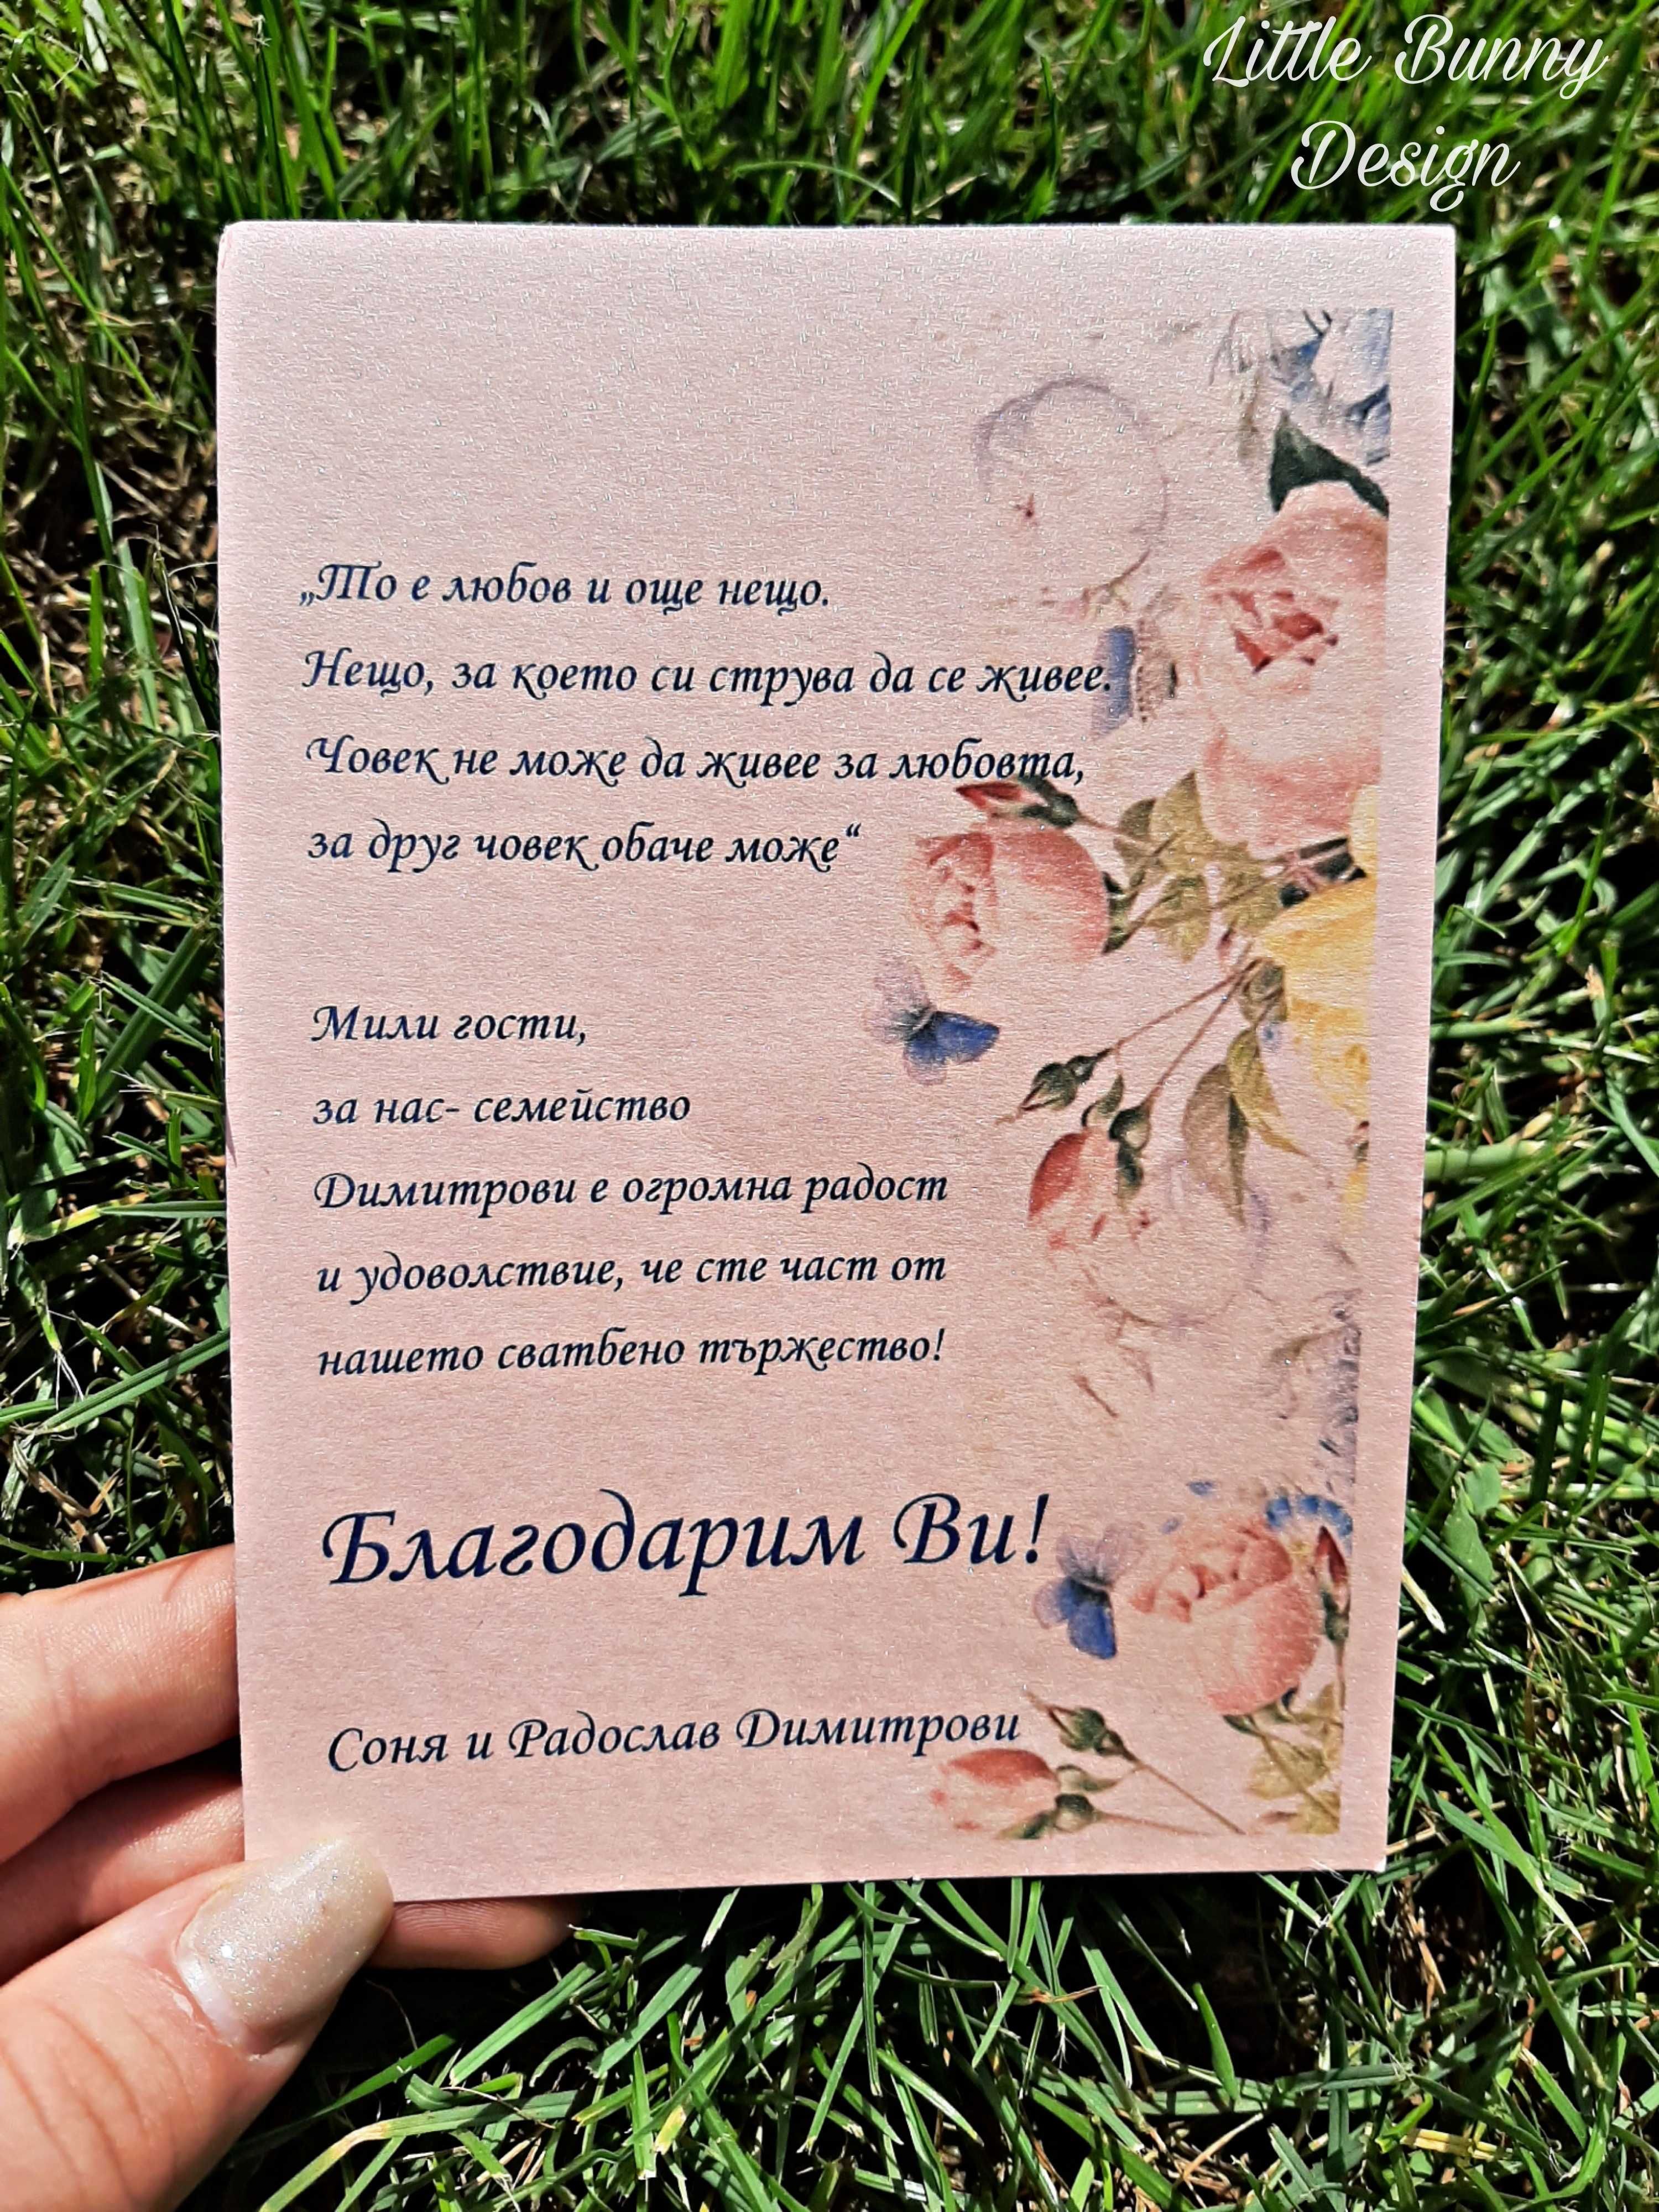 Little Bunny
Design
„То е любов и още нещо.
Нещо, за което си струва да се живее.
Човек не може да живее за любовта,
за друг човек обаче може“
Мили гости,
за нас- семейство
Димитрови е огромна радост
и удоволствие, че сте част от
нашето сватбено тържество!
Благодарим Ви!
Соня и Радослав Димитрови